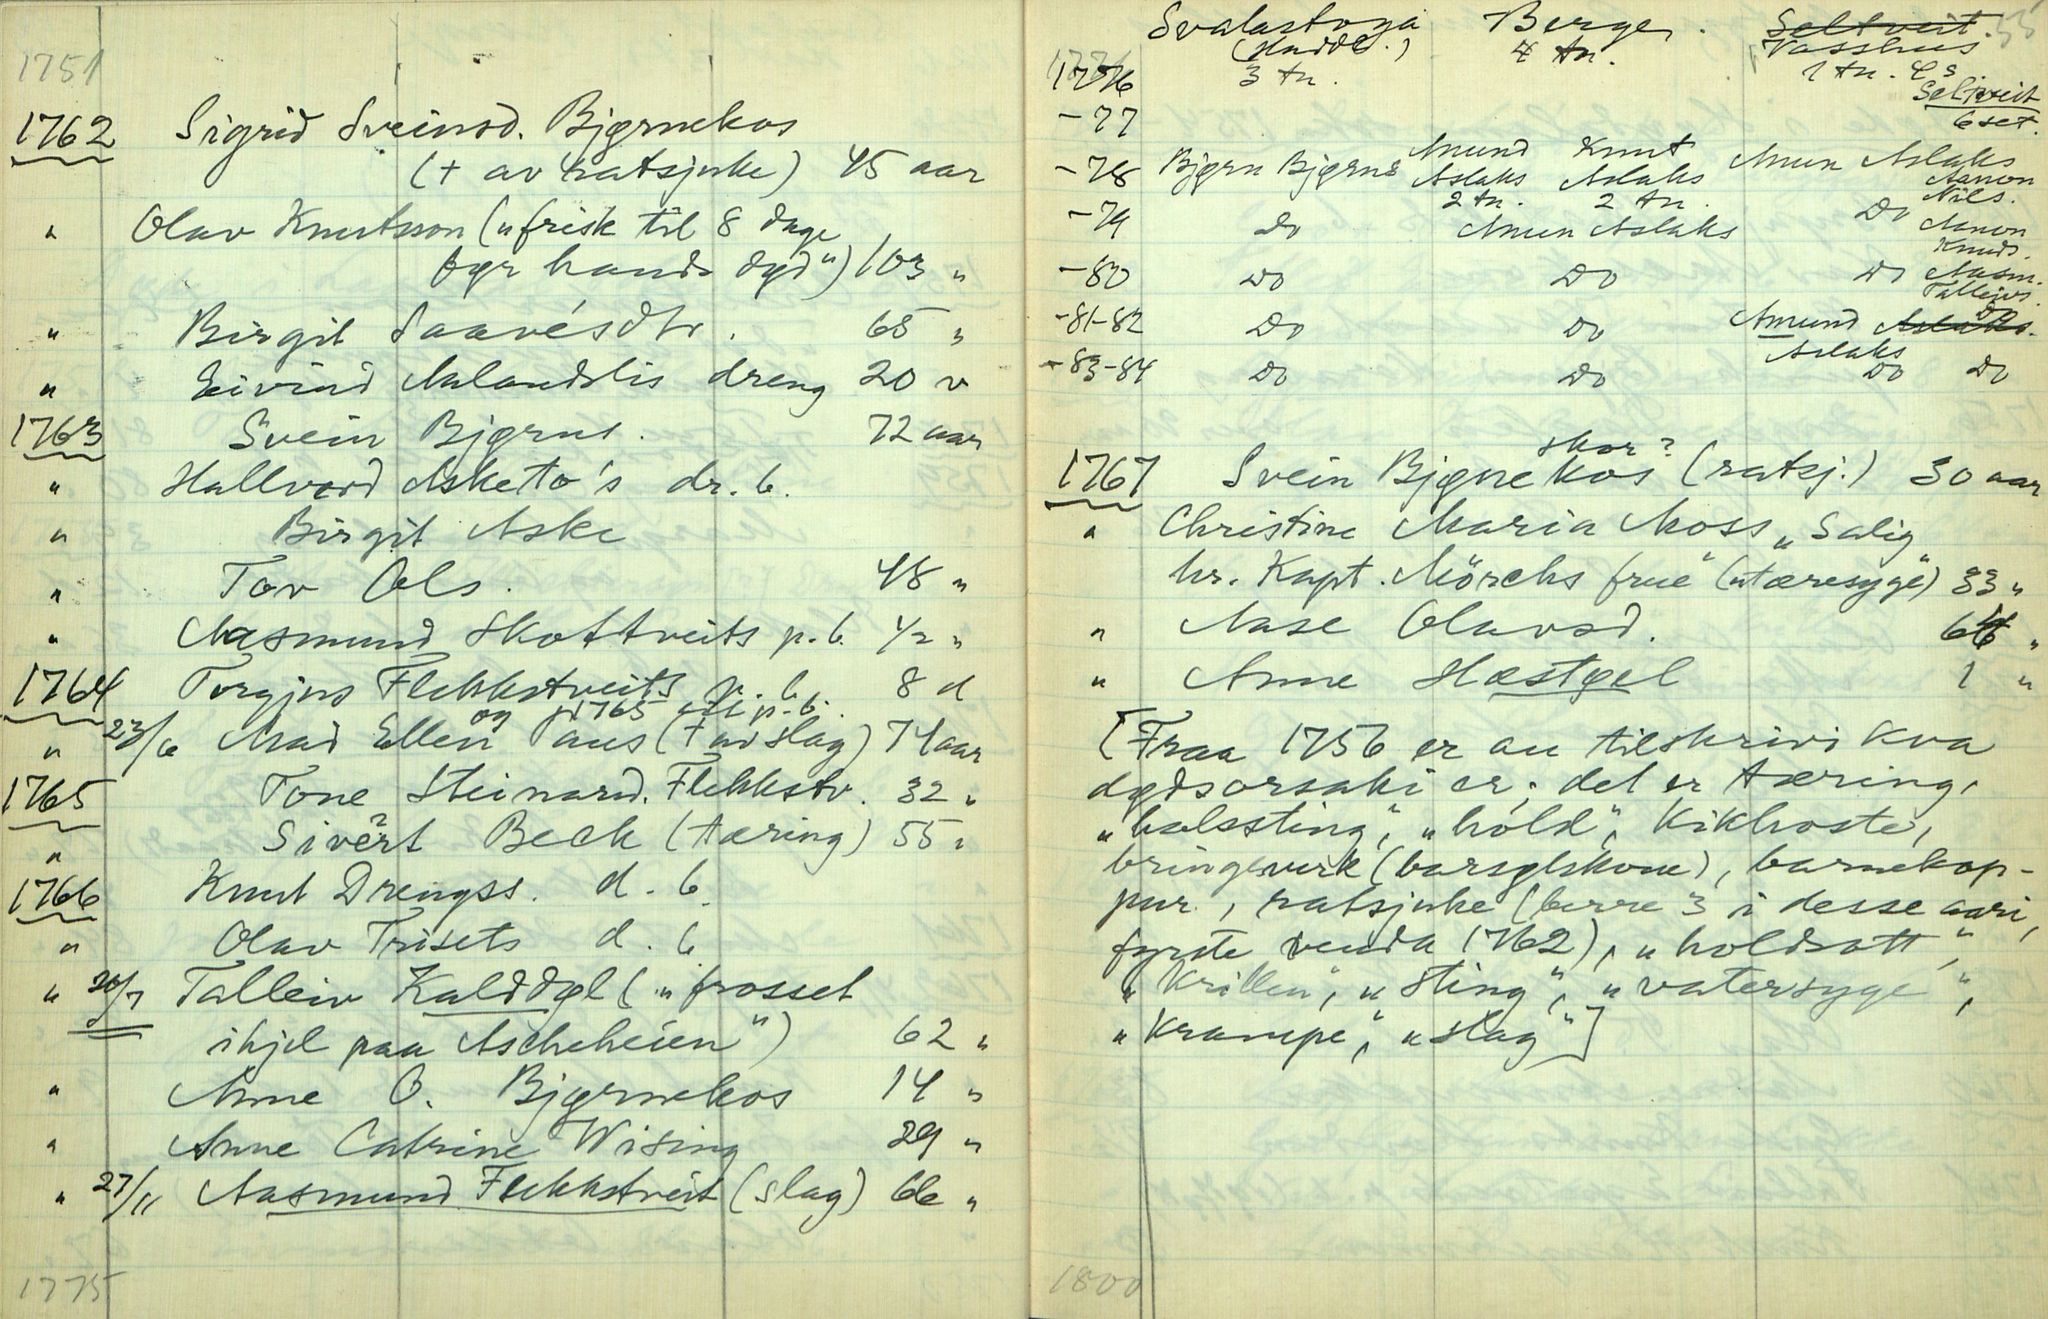 1751
1762 Sigrid Sveinsd. Bjørnekos
(+ av ratsjuke) 45 aar
" Olav Knutsson („frisk til 8 dage
før hands død") 103 "
" Birgit Saavesdtr. 65 "
" Eivind Aalandslis dreng 20 v
1763 Svein Bjørns. 72 aar
" Hallvord Asketo's dr. b.
" Birgit Aske
" Tov Ols. 48 "
" Aasmund Skottveits p. b. 1/2 "
1764 Torgjus Flekkstveits p. b. 8 d
og 1765 eit p. b.
" 23/6 Mad Ellen Paus (+ av slag) 74 aar
1765 Tone Steinard. Flekkstv. 32 "
" Sivert ? Beck (tæring) 55 "
1766 Knut Drengss. d. b.
" Olav Trisets d. b.
" 20/7 Talleiv Kalddøl („frosset
ihjel paa Ascheheien") 62 "
" Anne O. Bjørnekos 14 "
" Anne Catrine Wising 29 "
" 27/11 Aasmund Flekkstveit (slag) 66 "
1775
Svalastoga Berge. Seltveit.
(Hudde.) 4 tn. Vasshus
1776 3 tn. 1 tn. 4 s.
Seltveit
-77 6 set.
-78 Bjørn Bjørns Amund Aslaks 2 tn. Knut Aslaks 2 tn. Amun Aslaks Aanon Nils.
-79 Do Amun Aslaks Do Aanon Knuds.
-80 Do Do Do Aasm. Talleivs.
-81-82 Do Do Amund Aslaks. Do
Aslaks
-83-84 Do Do Do Do
skor?
1767 Svein Bjørnekos (ratsj.) 30 aar
" Christine Maria Moss „Salig
hr. Kapt. Mörchs frue" („tæresyge") 33 "
" Aase Olavsd. 66 "
" Anne Hæstøl 1 "
[Fraa 1756 er au tilskrivi kva
dødsorsaki er; det er tæring,
„halssting", „hold", Kikhoste,
bringeverk (barsølskone), barnekop-
pur, ratsjuke (berre 3 i desse aari,
fyrste venda 1762), „holdsott",
„Krillen", „Sting", „vatersyge",
„Krampe", „slag"]
1800